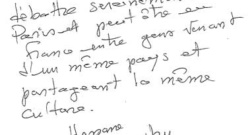 débattre sereinement
Paris et peut être en
France entre gens venant
d'un même pays et
partageant la même
culture.